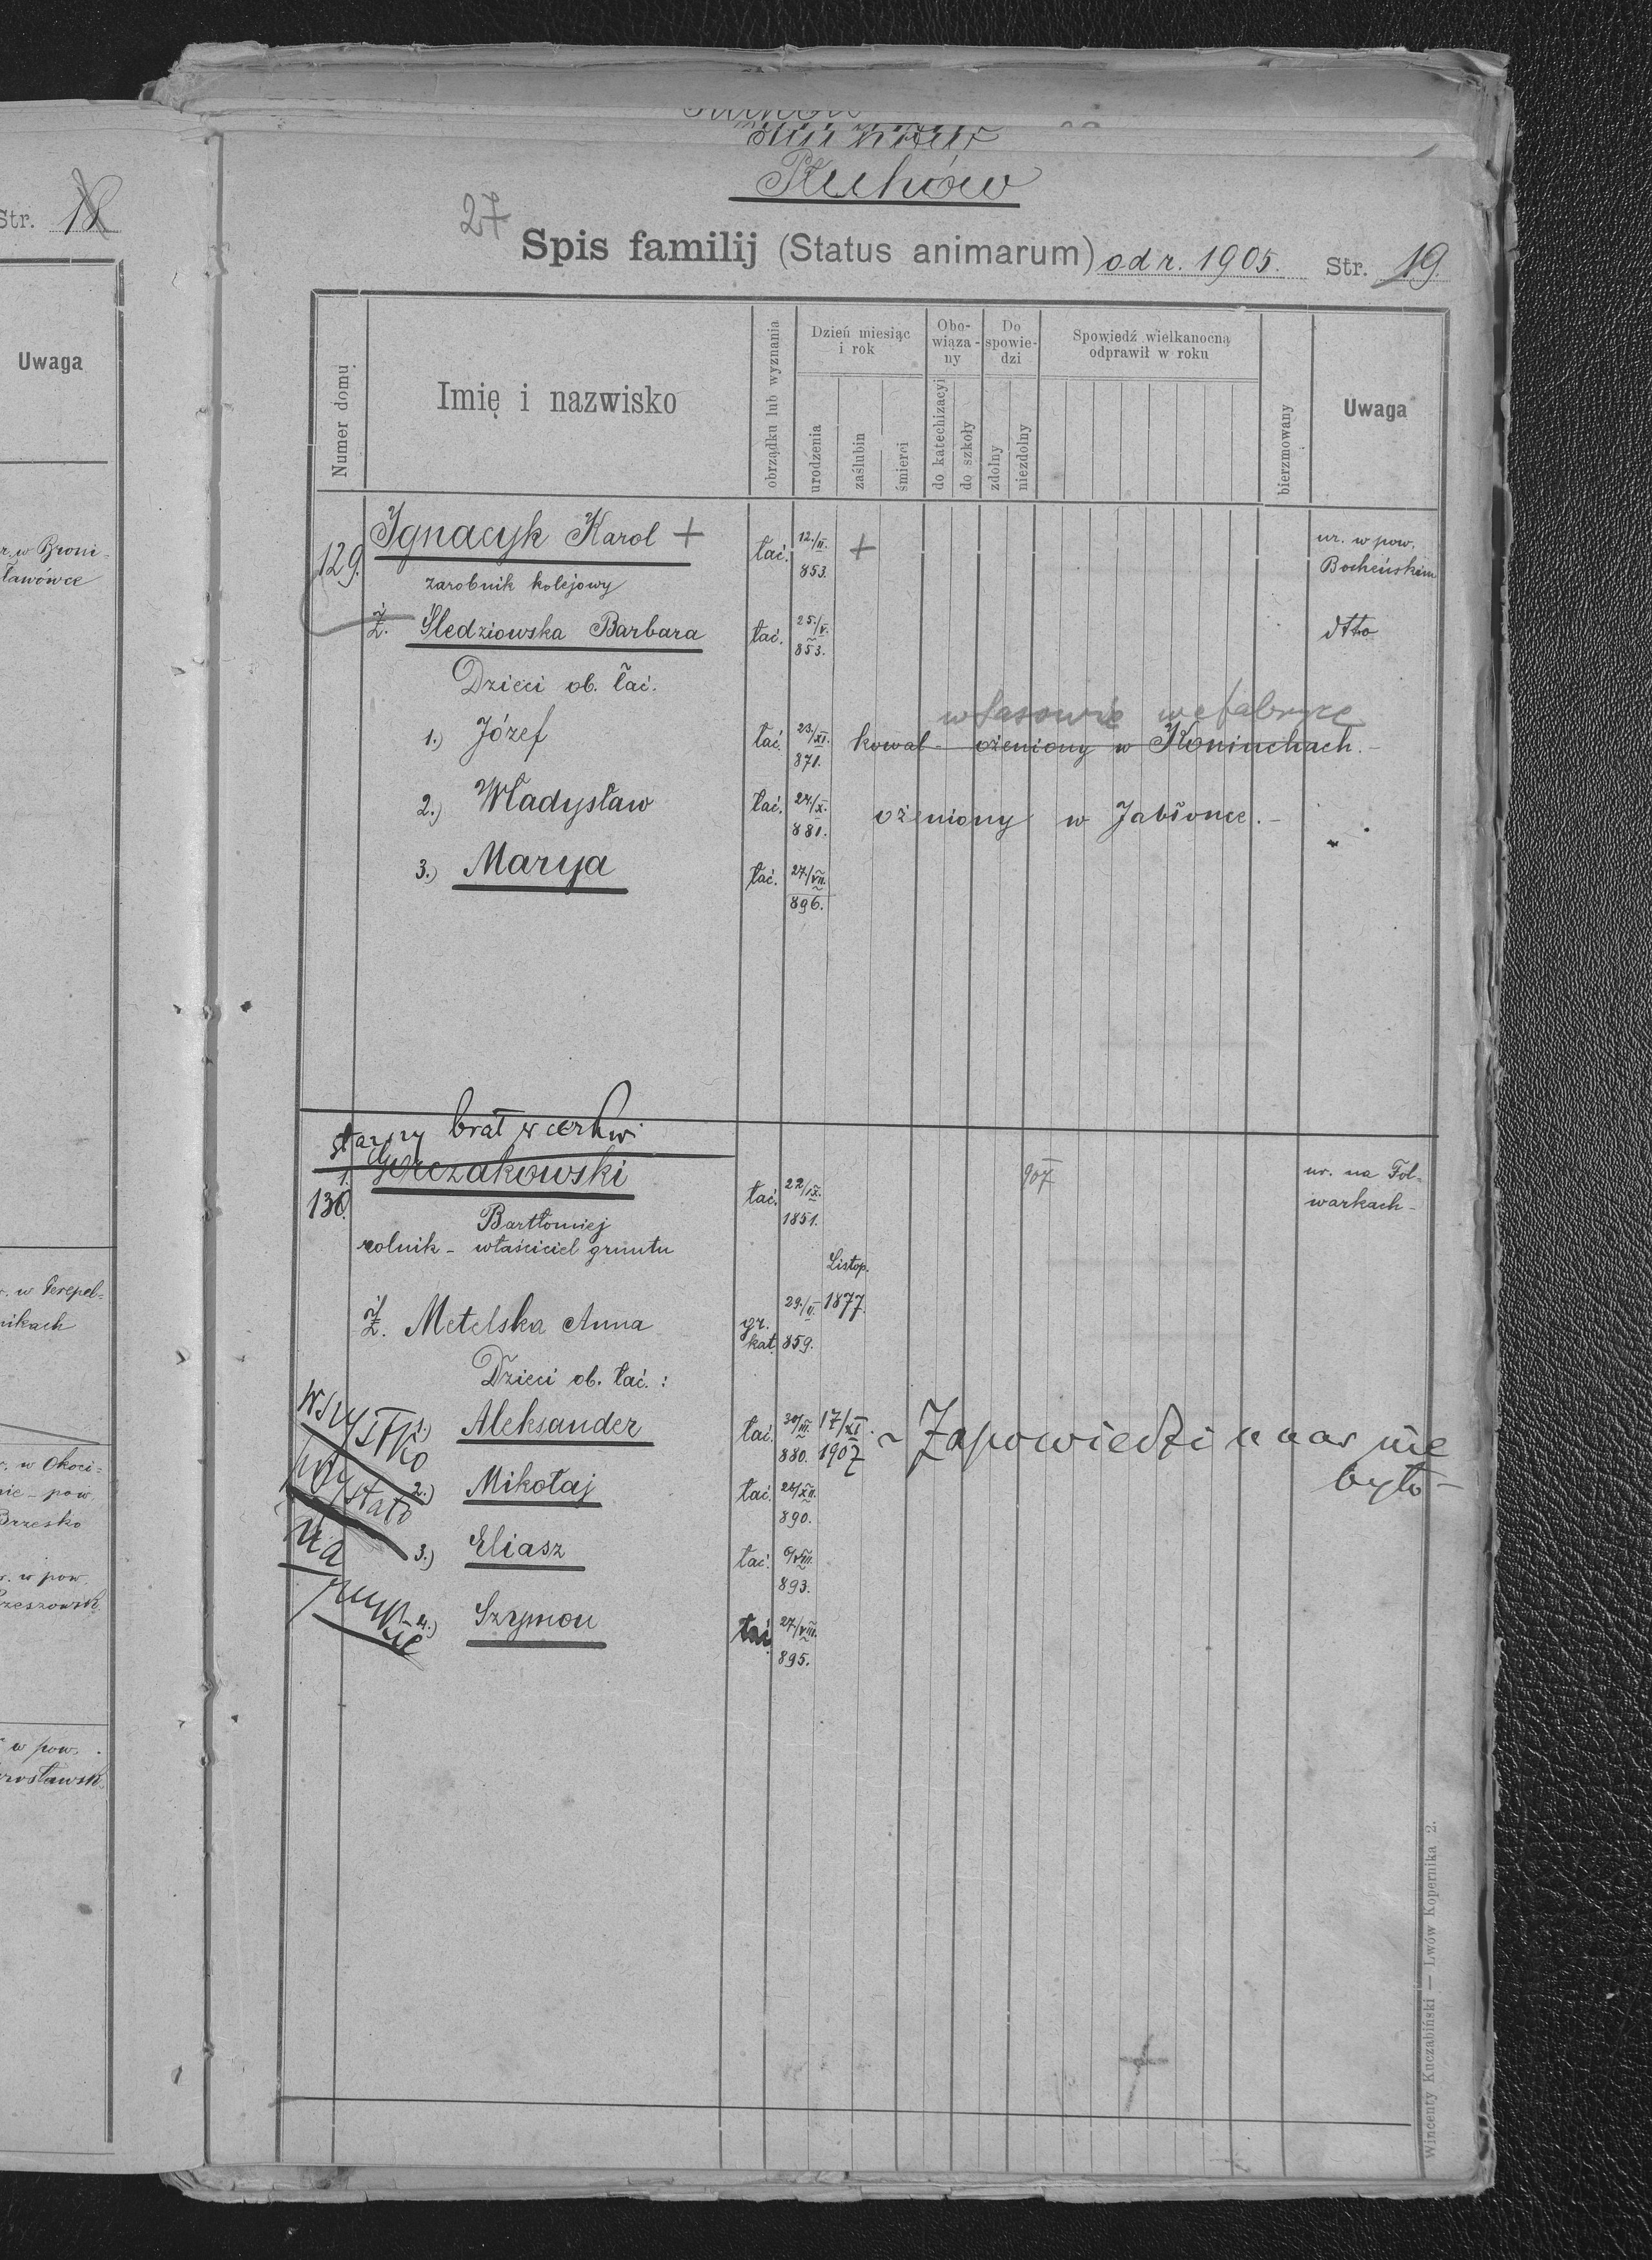 Str. 18
Uwaga
r. w Broni-
sławówce
r. w Perepel-
nikach
r. w Okoci-
nie - pow.
Brzesko
r. w pow.
Rzeszowsk.
w pow.
Jarosławsk.
Płuchów
27
Spis familij (Status animarum) od r. 1905. Str. 19
Numer domu
Imię i nazwisko
obrządku lub wyznania
Dzień miesiąc
i rok
urodzenia
zaślubin
śmierci
Obo-
wiąza-
ny
do katechizacyi
do szkoły
Do
spowie-
dzi
zdolny
niezdolny
Spowiedź wielkanocną
odprawił w roku
bierzmowany
Uwaga
129. Ignacyk Karol + łać. 12./II. 853. + ur. w pow.
Bocheńskim
zarobnik kolejowy
Ż. Śledziowska Barbara łać. 25./V. 853. dtto
Dzieci ob. łać.
we fabryce
1.) Józef łać. 23/XI. 871. kowal - ożeniony w Koniuchach. -
2.) Władysław łać. 24/X. 881. ożeniony w Jabłonce. -
3.) Marya łać. 27/VII. 896.
starszy brat w cerkwi
1. Gorczakowski
130. Bartłomiej łać. 22/IX. 1851. 907 ur. na Fol-
warkach -
rolnik - właściciel gruntu
Listop.
Ż. Metelska Anna gr. kat. 29./II. 859. 1877.
Dzieci ob. łać. :
1.) Aleksander łać. 30/III. 880. 17/XI. 1907 - Zapowiedzi u nas nie
było -
2.) Mikołaj łać. 26/XII. 890.
3.) Eliasz łać. 6/VIII. 893.
4.) Szymon łać. 27/VIII. 895.
wszystko
na
Wincenty Kuczabiński — Lwów Kopernika 2.